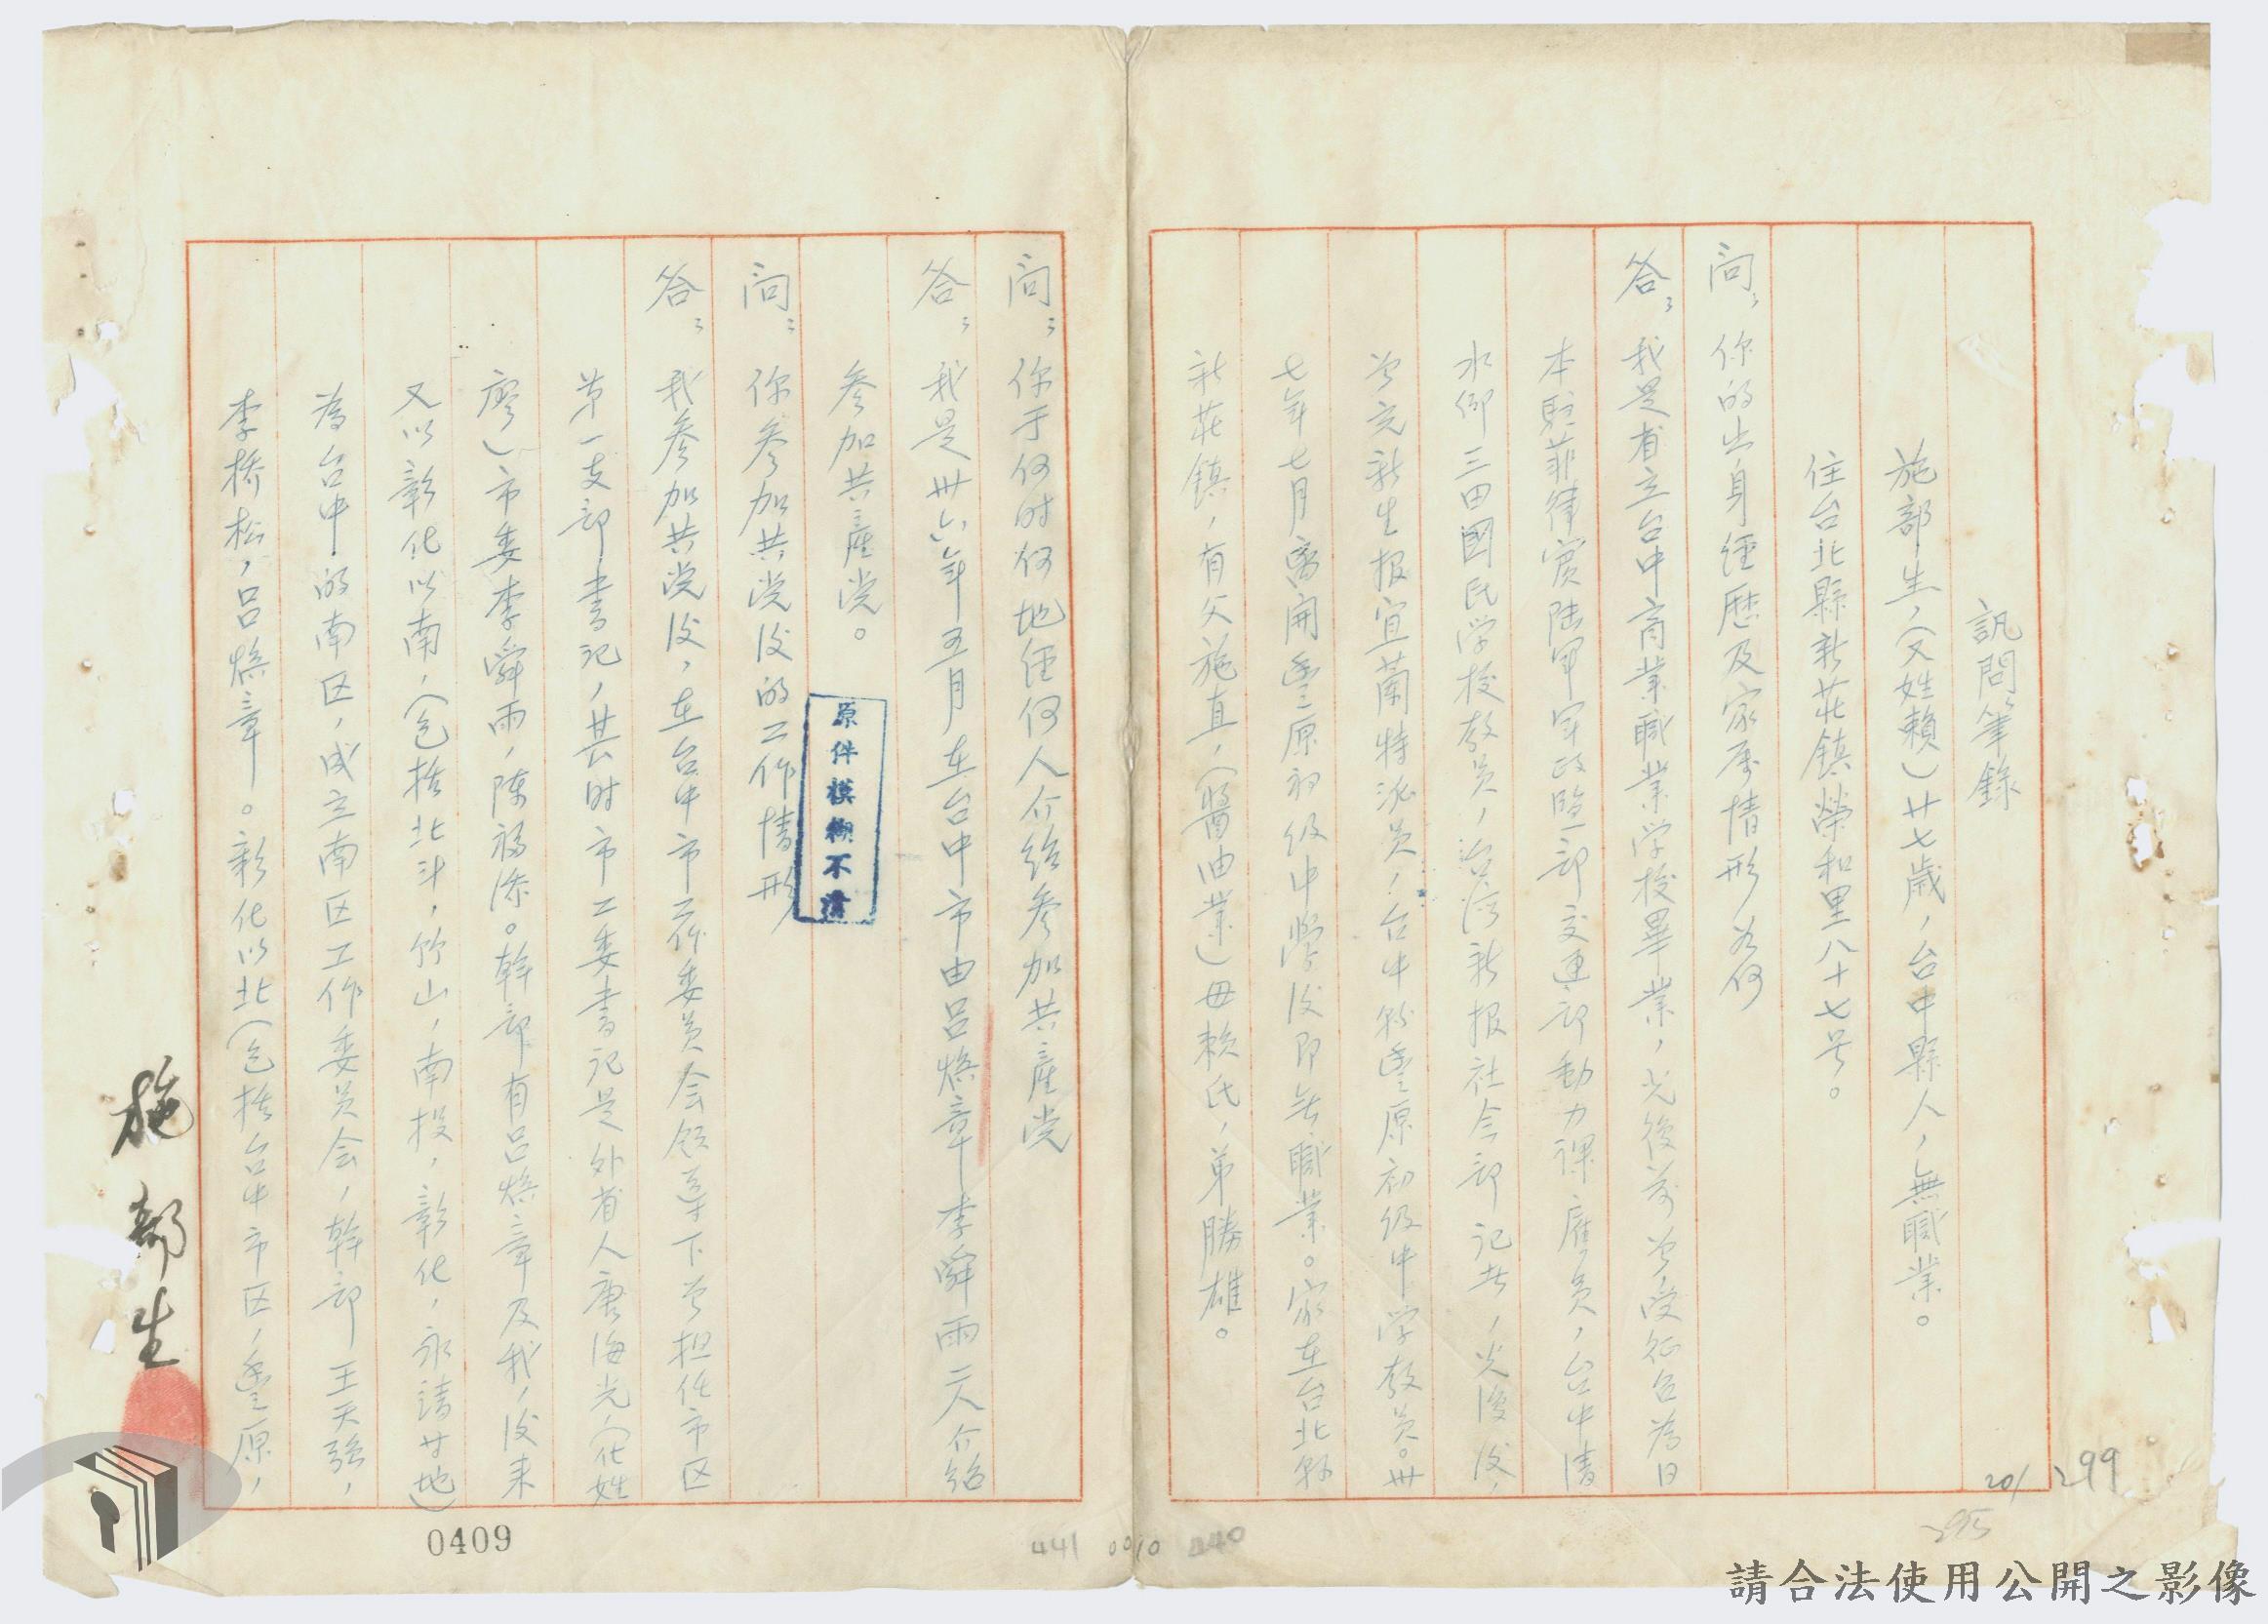 訊問筆錄
施部生，（又姓賴）廿七歲，台中縣人，無職業。
住台北縣新莊鎮榮和里八十七号。
问：你的出身经歷及家庭情形为何
答：我是省立台中商業職業学校畢業，光復前曾受征召為日
本駐菲律賓陆军军政監部交通部動力課雇员，台中清
水御三田國民学校教员，台湾新报社会部記者，光復後，
曾充新生报宜蘭特派员，台中縣豐原初级中学教员。卅
七年七月离開豐原初级中學後即無職業。家在台北縣
新莊鎮，有父施直，（醬油業）母赖氏，弟勝雄。
问：你于何时何地经何人介绍參加共產党
答：我是卅六年五月在台中市由呂煥章李舜雨二人介紹
參加共產党。
问：你參加共党後的工作情形
答：我參加共党後，在台中市工作委员会領導下曾担任市区
第一支部書記，其时市工委書記是外省人唐海光（化姓
廖）市委李舜雨，陳福添。幹部有呂煥章及我，後来
又以彰化以南，（包括北斗，竹山，南投，彰化，永靖廿地）
為台中的南区，成立南区工作委员会，幹部王天強，
李橋松，呂煥章。彰化以北（包括台中市区，豐原，
原件模糊不清
施部生
201
299
295
0409
441 0010 440
請合法使用公開之影像